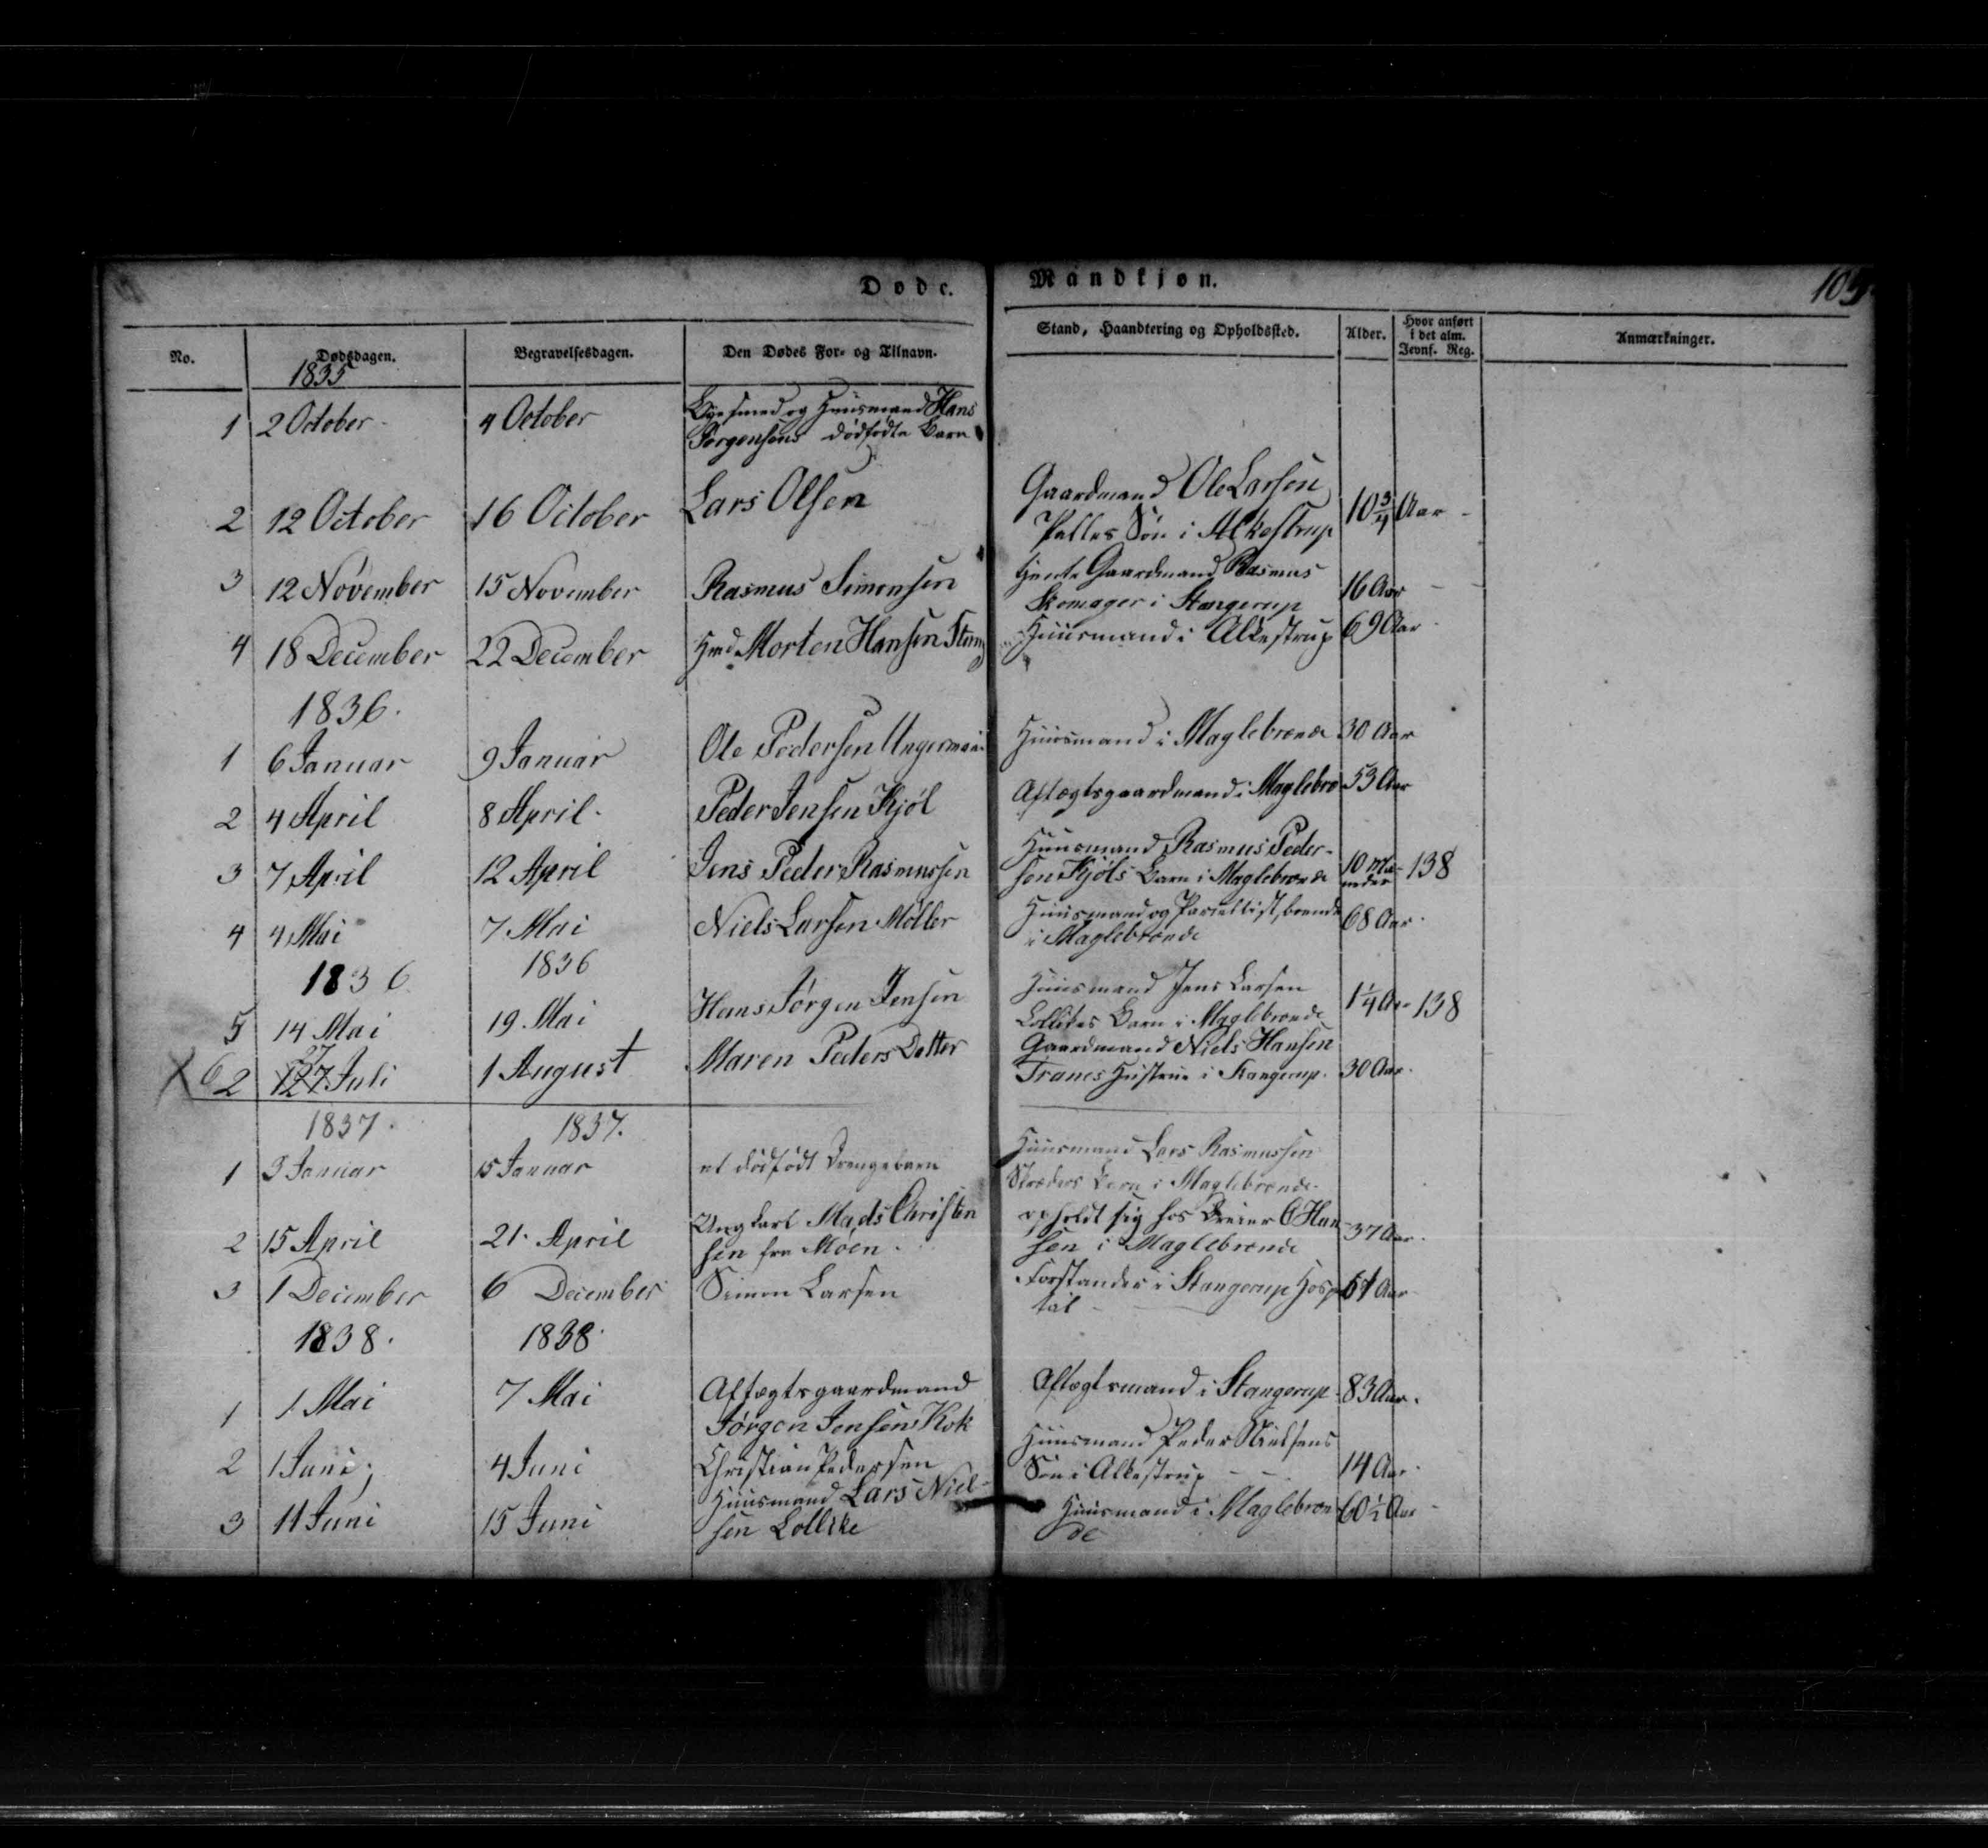 Døde. Mandkjøn. 105
No. Dødsdagen. Begravelsesdagen. Den Dødes For- og Tilnavn. Stand, Haandtering og Opholdssted. Alder. Hvor anført i det alm. Jevnf. Reg. Anmærkninger.
1835
1 2 October 4 October Huusmand Hans
Jørgensens dødfødte Barn
2 12 October 16 October Lars Olsen Gaardmand Ole Larsen
Palles Søn i Alkestrup 10 3/4 Aar
3 12 November 15 November Rasmus Simonsen Gaardmand Rasmus
Skomager i Stangerup 16 Aar
4 18 December 22 December Hmd Morten Hansen Huusmand i Alkestrup 69 Aar
1836.
1 6 Januar 9 Januar Ole Pedersen Ungermann Huusmand i Maglebrænde 30 Aar
2 4 April 8 April. Peder Jensen Kjøl Aftægtsgaardmand i Maglebræ 53 Aar
3 7 April 12 April Jens Peder Rasmussen Huusmand Rasmus Peder-
sen Kjøls Barn i Maglebrænde 10 Maa-
neder 138
4 4 Mai 7 Mai Niels Larsen Møller Huusmand og Parcellist, boende
i Maglebrænde 68 Aar.
1836 1836
5 14 Mai 19 Mai Hans Jørgen Jensen Huusmand Jens Larsen
Lollikes Barn i Maglebrænde 1 1/4 Aar 138
X 6 2 27 Juli 1 August Maren Peders Datter Gaardmand Niels Hansen
Tranes Hustrue i Stangerup. 30 Aar.
1837. 1837.
1 3 Januar 15 Januar et dødfødt Drengebarn Huusmand Lars Rasmussen
Skræders Barn i Maglebrænde.
2 15 April 21. April Ung Karl Mads Christen
sen fra Møen. opholdt sig hos C Han-
sen i Maglebrænde 37 Aar.
3 1 December 6 December Simon Larsen Forstander i Stangerup Hospi
tal 61 Aar
1838. 1838.
1 1 Mai 7 Mai Aftægtsgaardmand
Jørgen Jensen Kok Aftægtsmand i Stangerup 83 Aar.
2 1 Juni 4 Juni Christian Pedersen Huusmand Peder Nielsens
Søn i Alkestrup 14 Aar.
3 11 Juni 15 Juni Huusmand Lars Niel-
sen Lollike Huusmand i Maglebræn
de 60 1/2 Aar